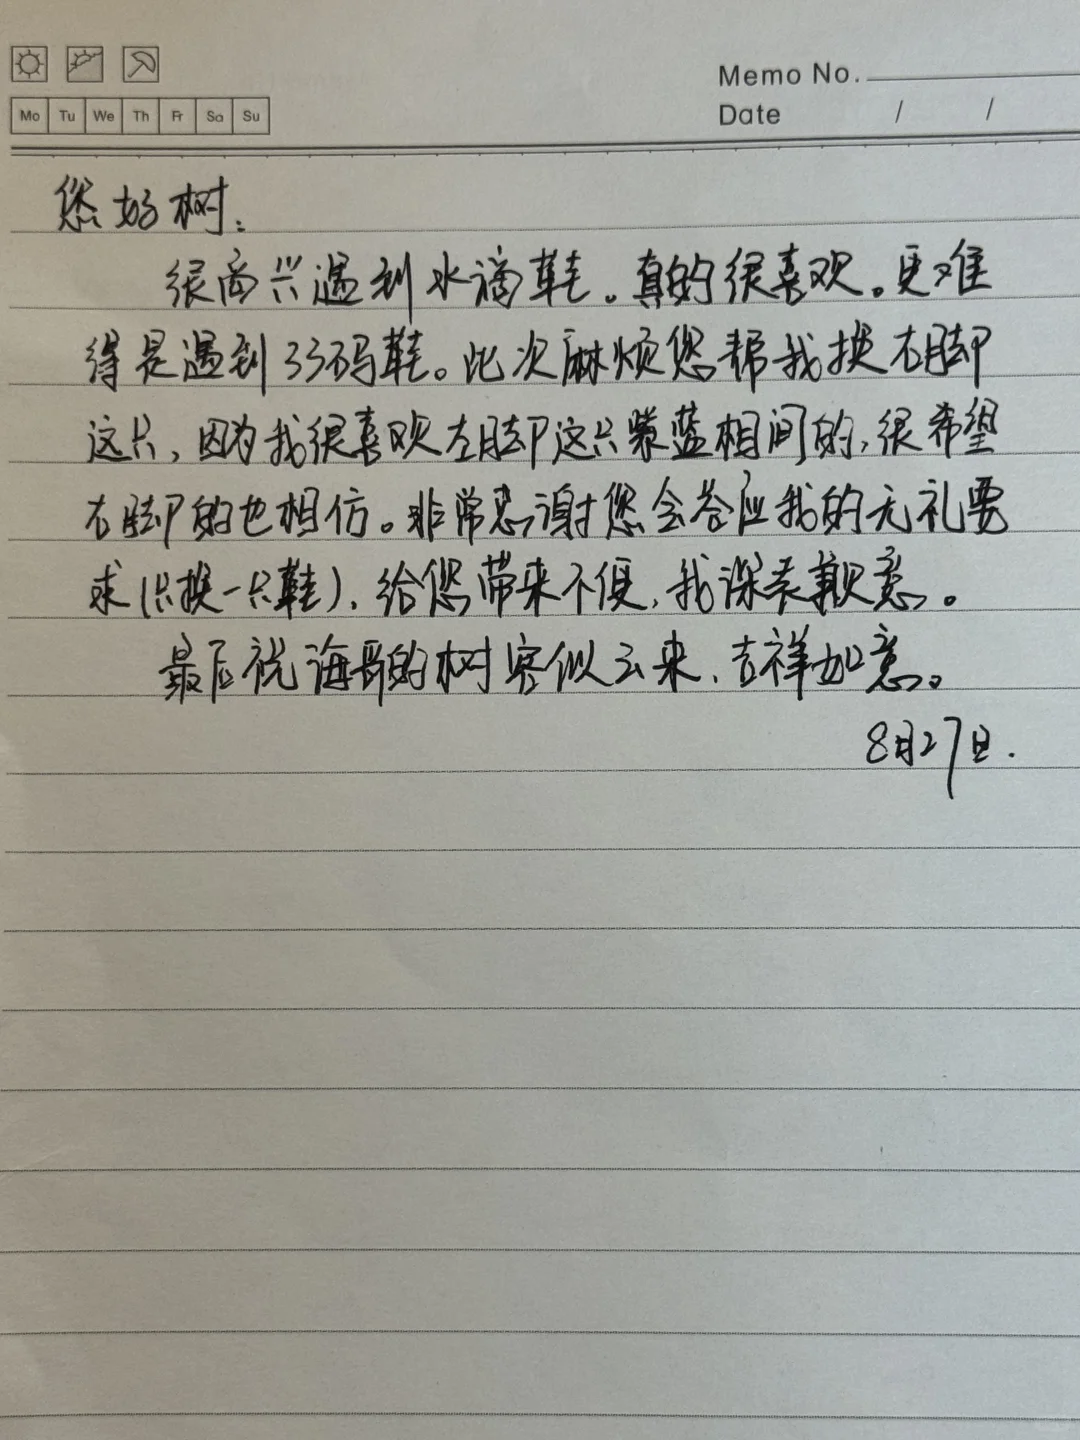 Memo No.
Mo Tu We Th Fr Sa Su
Date / /
您好树:
很高兴遇到水滴鞋。真的很喜欢。更难
得是遇到33码鞋。此次麻烦您帮我换右脚
这只,因为我很喜欢左脚这只紫蓝相间的,很希望
右脚的也相仿。非常感谢您会答应我的无礼要
求(只换一只鞋),给您带来不便,我深表歉意。
最后祝海哥的树客似云来,吉祥如意。
8月27日.